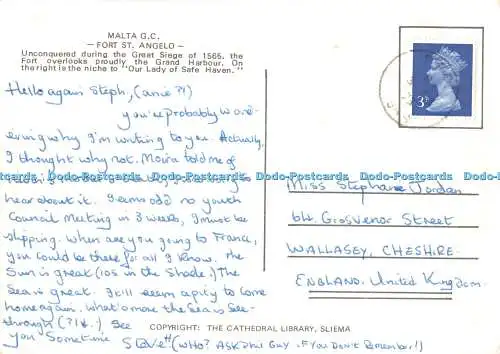 MALTA G.C.
— FORT ST. ANGELO —
Unconquered during the Great Siege of 1565, the
Fort overlooks proudly the Grand Harbour. On
the right is the niche to "Our Lady of Safe Haven."
Hello again Steph, (arrie ?!)
you're probably wond-
ering why I'm writing to you. Actually,
I thought why not. Moira told me of
hear about it. Seems odd no youth
Council Meeting in 3 weeks, I must be
slipping. When are you going to France,
you could be there for all I know. The
Sun is great (105 in the Shade.) The
Sea is great. It'll seem a pity to come
home again. What's more the Sea is See-
through (?!*.) See
you Sometime Steve (WHO? ASK PHIL GUY, IF YOU DON'T Remember!)
3P
Miss Stephanie Jordan
64, Grosvenor Street
WALLASEY, CHESHIRE
ENGLAND, United Kingdom.
COPYRIGHT: THE CATHEDRAL LIBRARY, SLIEMA
Dodo-Postcards Dodo-Postcards Dodo-Postcards Dodo-Postcards